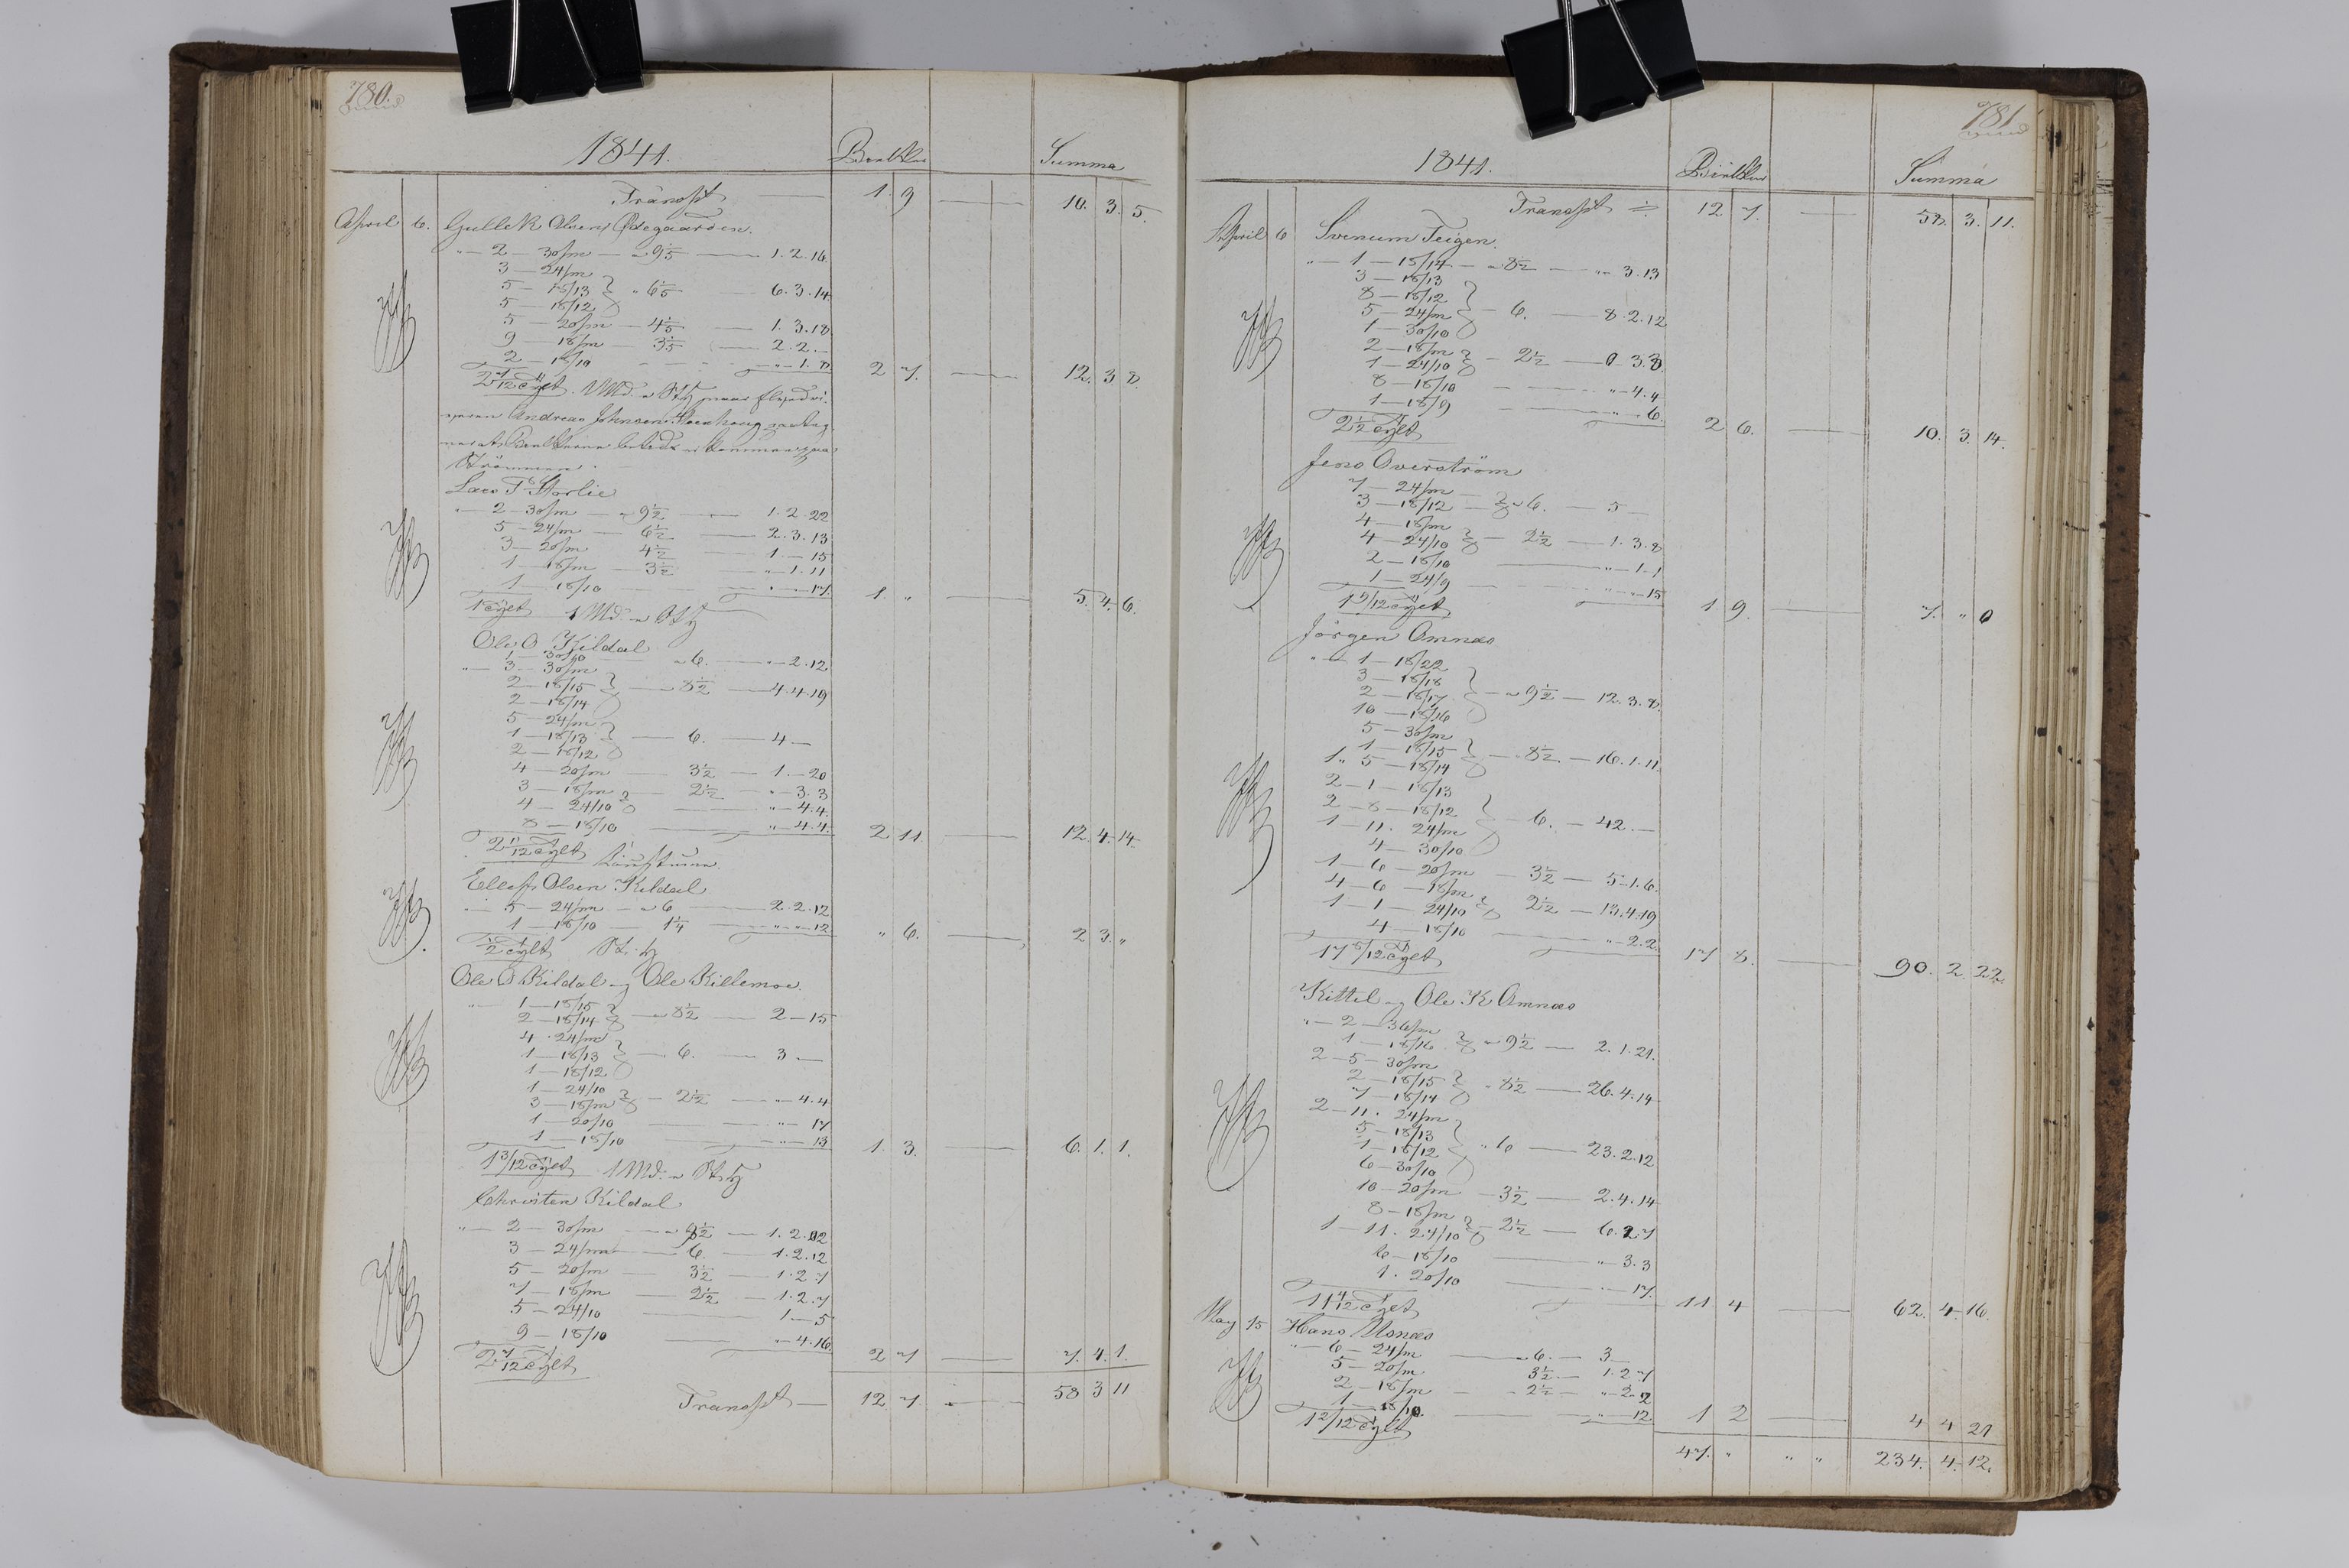 780.
1841. Summa
Transpt — 1. 9 — 10. 3. 5.
April 6. Gullek Olsen Ødegaarden.
"— 2 — 30/m — a 9 1/5 — 1. 2. 16.
3 — 24/m
5 — 18/13 } " 6 1/5 — 6. 3. 14
5 — 18/12
5 — 20/m — 4 1/5 — 1. 3. 18
9 — 18/m — 3 1/5 — 2. 2. —
2 — 18/10 — " — 1. 8
2 7/12 Tylt. 2 7. — 12. 3. 8.
Andreas Johnsen
Strömmen.
Lars T. Storlie
"— 2 — 30/m — a 9 1/2 — 1. 2. 22
5 — 24/m — 6 1/2 — 2. 3. 13
3 — 20/m 4 1/2 1 — 15
1 — 18/m — 3 1/2 " — 1. 11
1 — 18/10 — " — 17
1 Tylt 1. " — 5. 4. 6.
Ole O Kildal
1 — 30/10 — a 6. — " — 2. 12
"— 3 — 30/m
2 — 18/15 } — 8 1/2 — 4. 4. 19
2 — 18/14
5 — 24/m
1 — 18/13 } — 6. — 4 —
2 — 18/12
4 — 20/m — 3 1/2 — 1. — 20
3 — 18/m } — 2 1/2 — " — 3. 3
4 — 24/10 — " — 4. 4.
8 — 18/10 — " — 4. 4.
2 11/12 Tylt 2 11 — 12. 4. 14.
Ellef Olsen Kildal
"— 5 — 24/m — a 6 — 2. 2. 12
1 — 18/10 — 1 1/4 — " — " — 12
1/2 Tylt " 6. — 2 3. "
Ole O Kildal og Ole Killemoe.
"— 1 — 18/15 } — a 8 1/2 — 2 — 15
2 — 18/14
4 . 24/m
1 — 18/13 } — 6. — 3 —
1 — 18/12
1 — 24/10 } — 2 1/2 — " — 4. 4
3 — 18/m
1 — 20/10 — " — 17
1 — 18/10 — " — 13
1 3/12 Tylt 1. 3. — 6. 1. 1.
Christen Kildal
"— 2 — 30/m — a 9 1/2 — 1. 2. 22
3 — 24/m — 6. — 1. 2. 12
5 — 20/m — 3 1/2 — 1. 2. 7
7 — 18/m — 2 1/2 — 1. 2. 7
5 — 24/10 — 1 — 5
9 — 18/10 — " — 4. 16.
2 7/12 Tylt 2 7 — 7. 4. 1.
Transpt — 12 7. — 58 3 11
781.
1841. Summa
Transpt 12 7. — 58. 3. 11.
April 6 Svenum Teigen.
"— 1 — 18/14 — a 8 1/2 — " 3. 13
3 — 18/13
8 — 18/12
5 — 24/m } — 6. — 8. 2. 12
1 — 30/10
2 — 18/m } — 2 1/2 — 0 3. 8
1 — 24/10
8 — 18/10 — " — 4. 4
1 — 18/9 — " — 6.
2 1/2 Tylt 2 6. — 10. 3. 14.
Jens Overström
7 — 24/m } a 6. — 5 —
3 — 18/12
4 — 18/m } — 2 1/2 — 1. 3. 8
4 — 24/10
2 — 18/10 — " — 1. 1
1 — 24/9 — " — 15
1 9/12 Tylt 1 9. — 7. " 0
Jörgen Omnæs
"— 1 — 18/22
3 — 18/18
2 — 18/17 } — a 9 1/2 — 12. 3. 8.
10 — 18/16
5 — 30/m
1 — 18/15 } — 8 1/2 — 16. 1. 11.
1 " 5 — 18/14
2 — 1 — 18/13
2 — 8 — 18/12
1 — 11. 24/m } — 6. — 42. —
4 — 30/10
1 — 6 — 20/m — 3 1/2 — 5 — 1. 6.
4 — 6 — 18/m } 2 1/2 — 13. 4. 19
1 — 1 — 24/10
4 — 18/10 — " — 2. 2.
17 8/12 Tylt 17 8. — 90. 2. 22
Kittel og Ole K Omnæs
"— 2 — 36/m
1 — 18/16 } a 9 1/2 — 2. 1. 21.
2 — 5 — 30/m
2 — 18/15 } " 8 1/2 — 26. 4. 14
7 — 18/14
2 — 11 . 24/m
5 — 18/13
1 — 18/12 } " 6 — 23. 2. 12
6 — 30/10
10 — 20/m — 3 1/2 — 2. 4. 14
8 — 18/m } — 2 1/2 — 6. 2. 7
1 — 11. 24/10
6 — 18/10 — " — 3. 3
1. 20/10 — 17.
11 4/12 Tylt 11 4 — 62. 4. 16
May 15 Hans Monæs
"— 6 — 24/m — a 6. — 3 —
5 — 20/m 3 1/2 — 1. 2. 7
2 — 18/m — 2 1/2 — " — 2. 2
1 — 18/10. — " — 12.
1 2/12 Tylt 1 2 — 4 4 21
47. " " " 234. 4. 12.